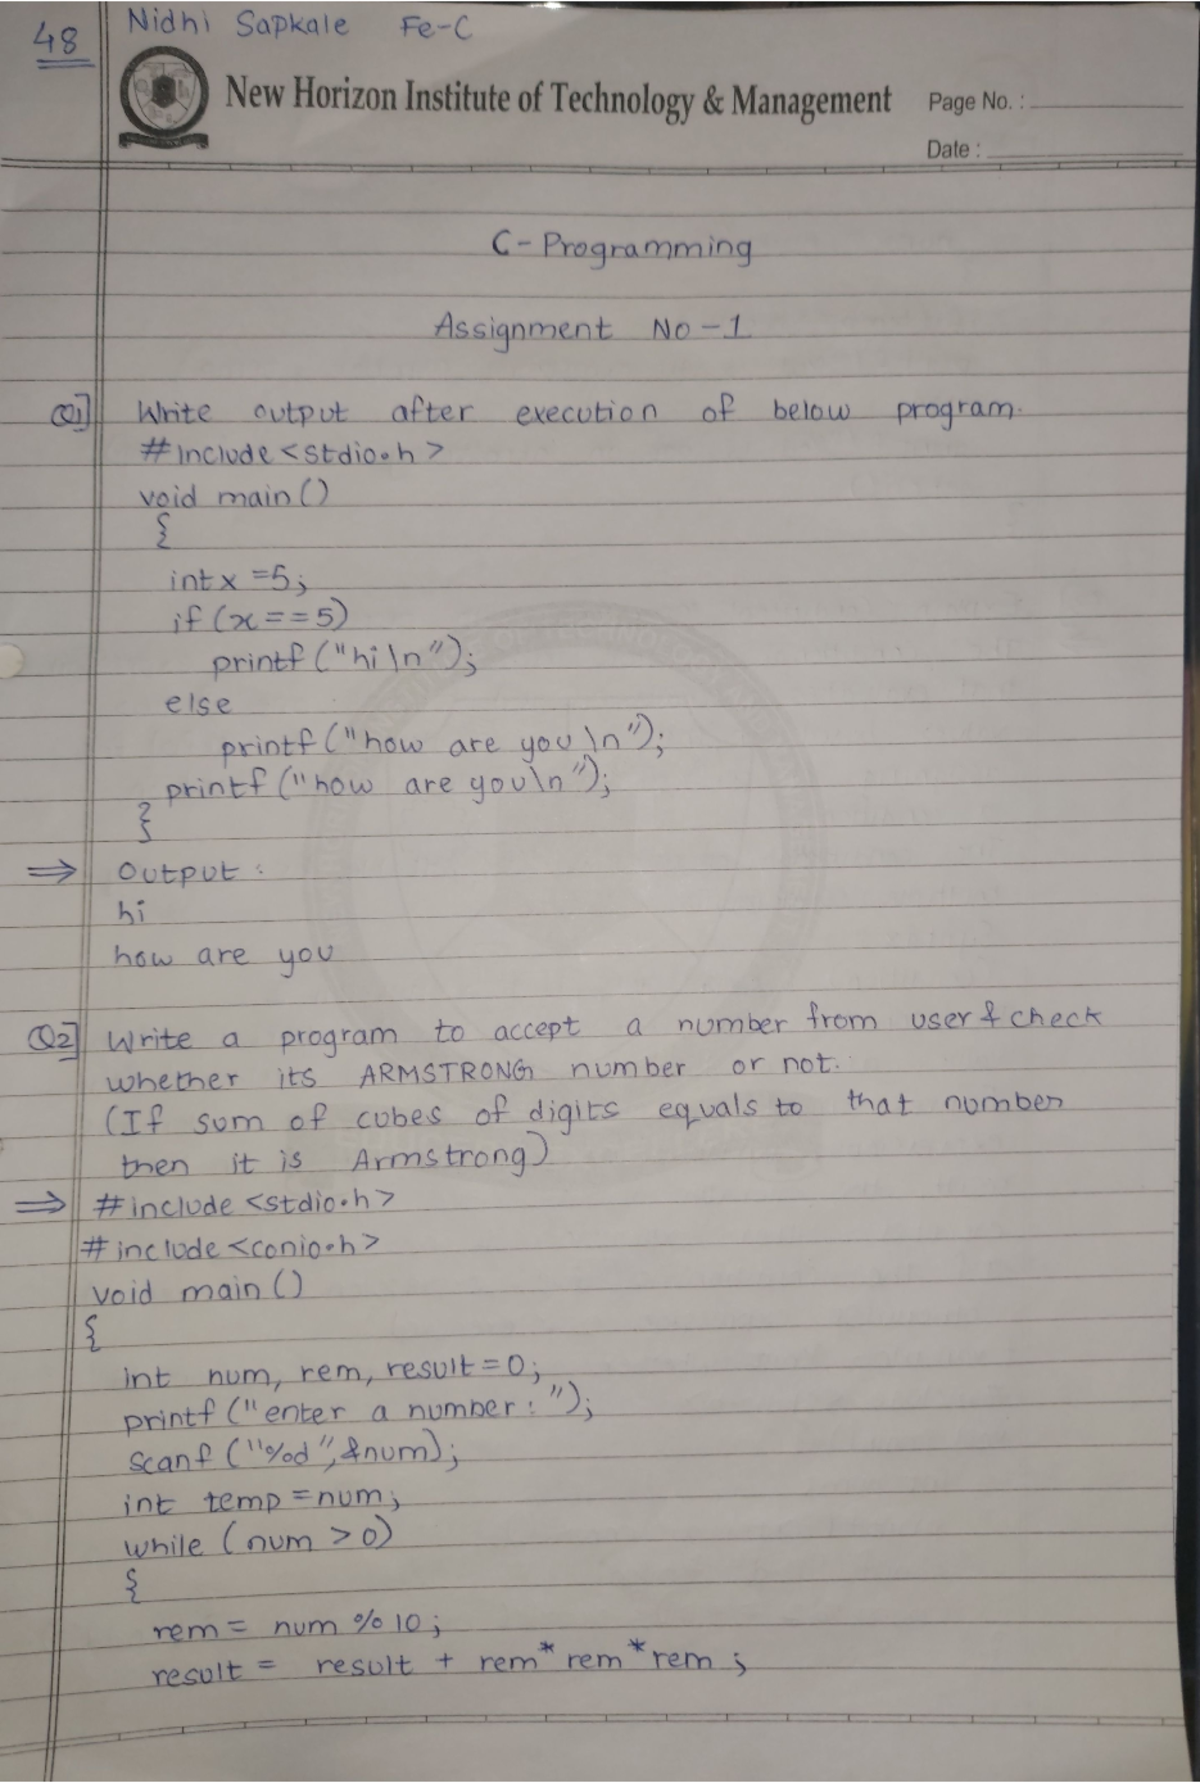 48
Nidhi Sapkale Fe-C
New Horizon Institute of Technology & Management
Page No. :
Date :
C-Programming
Assignment No-1
Q1] Write output after execution of below program.
#include<stdio.h>
void main()
{
int x =5;
if (x==5)
printf ("hi\n");
else
printf ("how are you \n");
printf ("how are you\n");
}
⇒ Output :
hi
how are you
Q2] Write a program to accept a number from user & check
whether its ARMSTRONG number or not.
(If sum of cubes of digits equals to that number
then it is Armstrong)
⇒ #include <stdio.h>
#include <conio.h>
void main ()
{
int num, rem, result=0;
printf ("enter a number: ");
scanf ("%d", &num);
int temp =num;
while (num > 0)
{
rem = num % 10;
result = result + rem*rem*rem ;